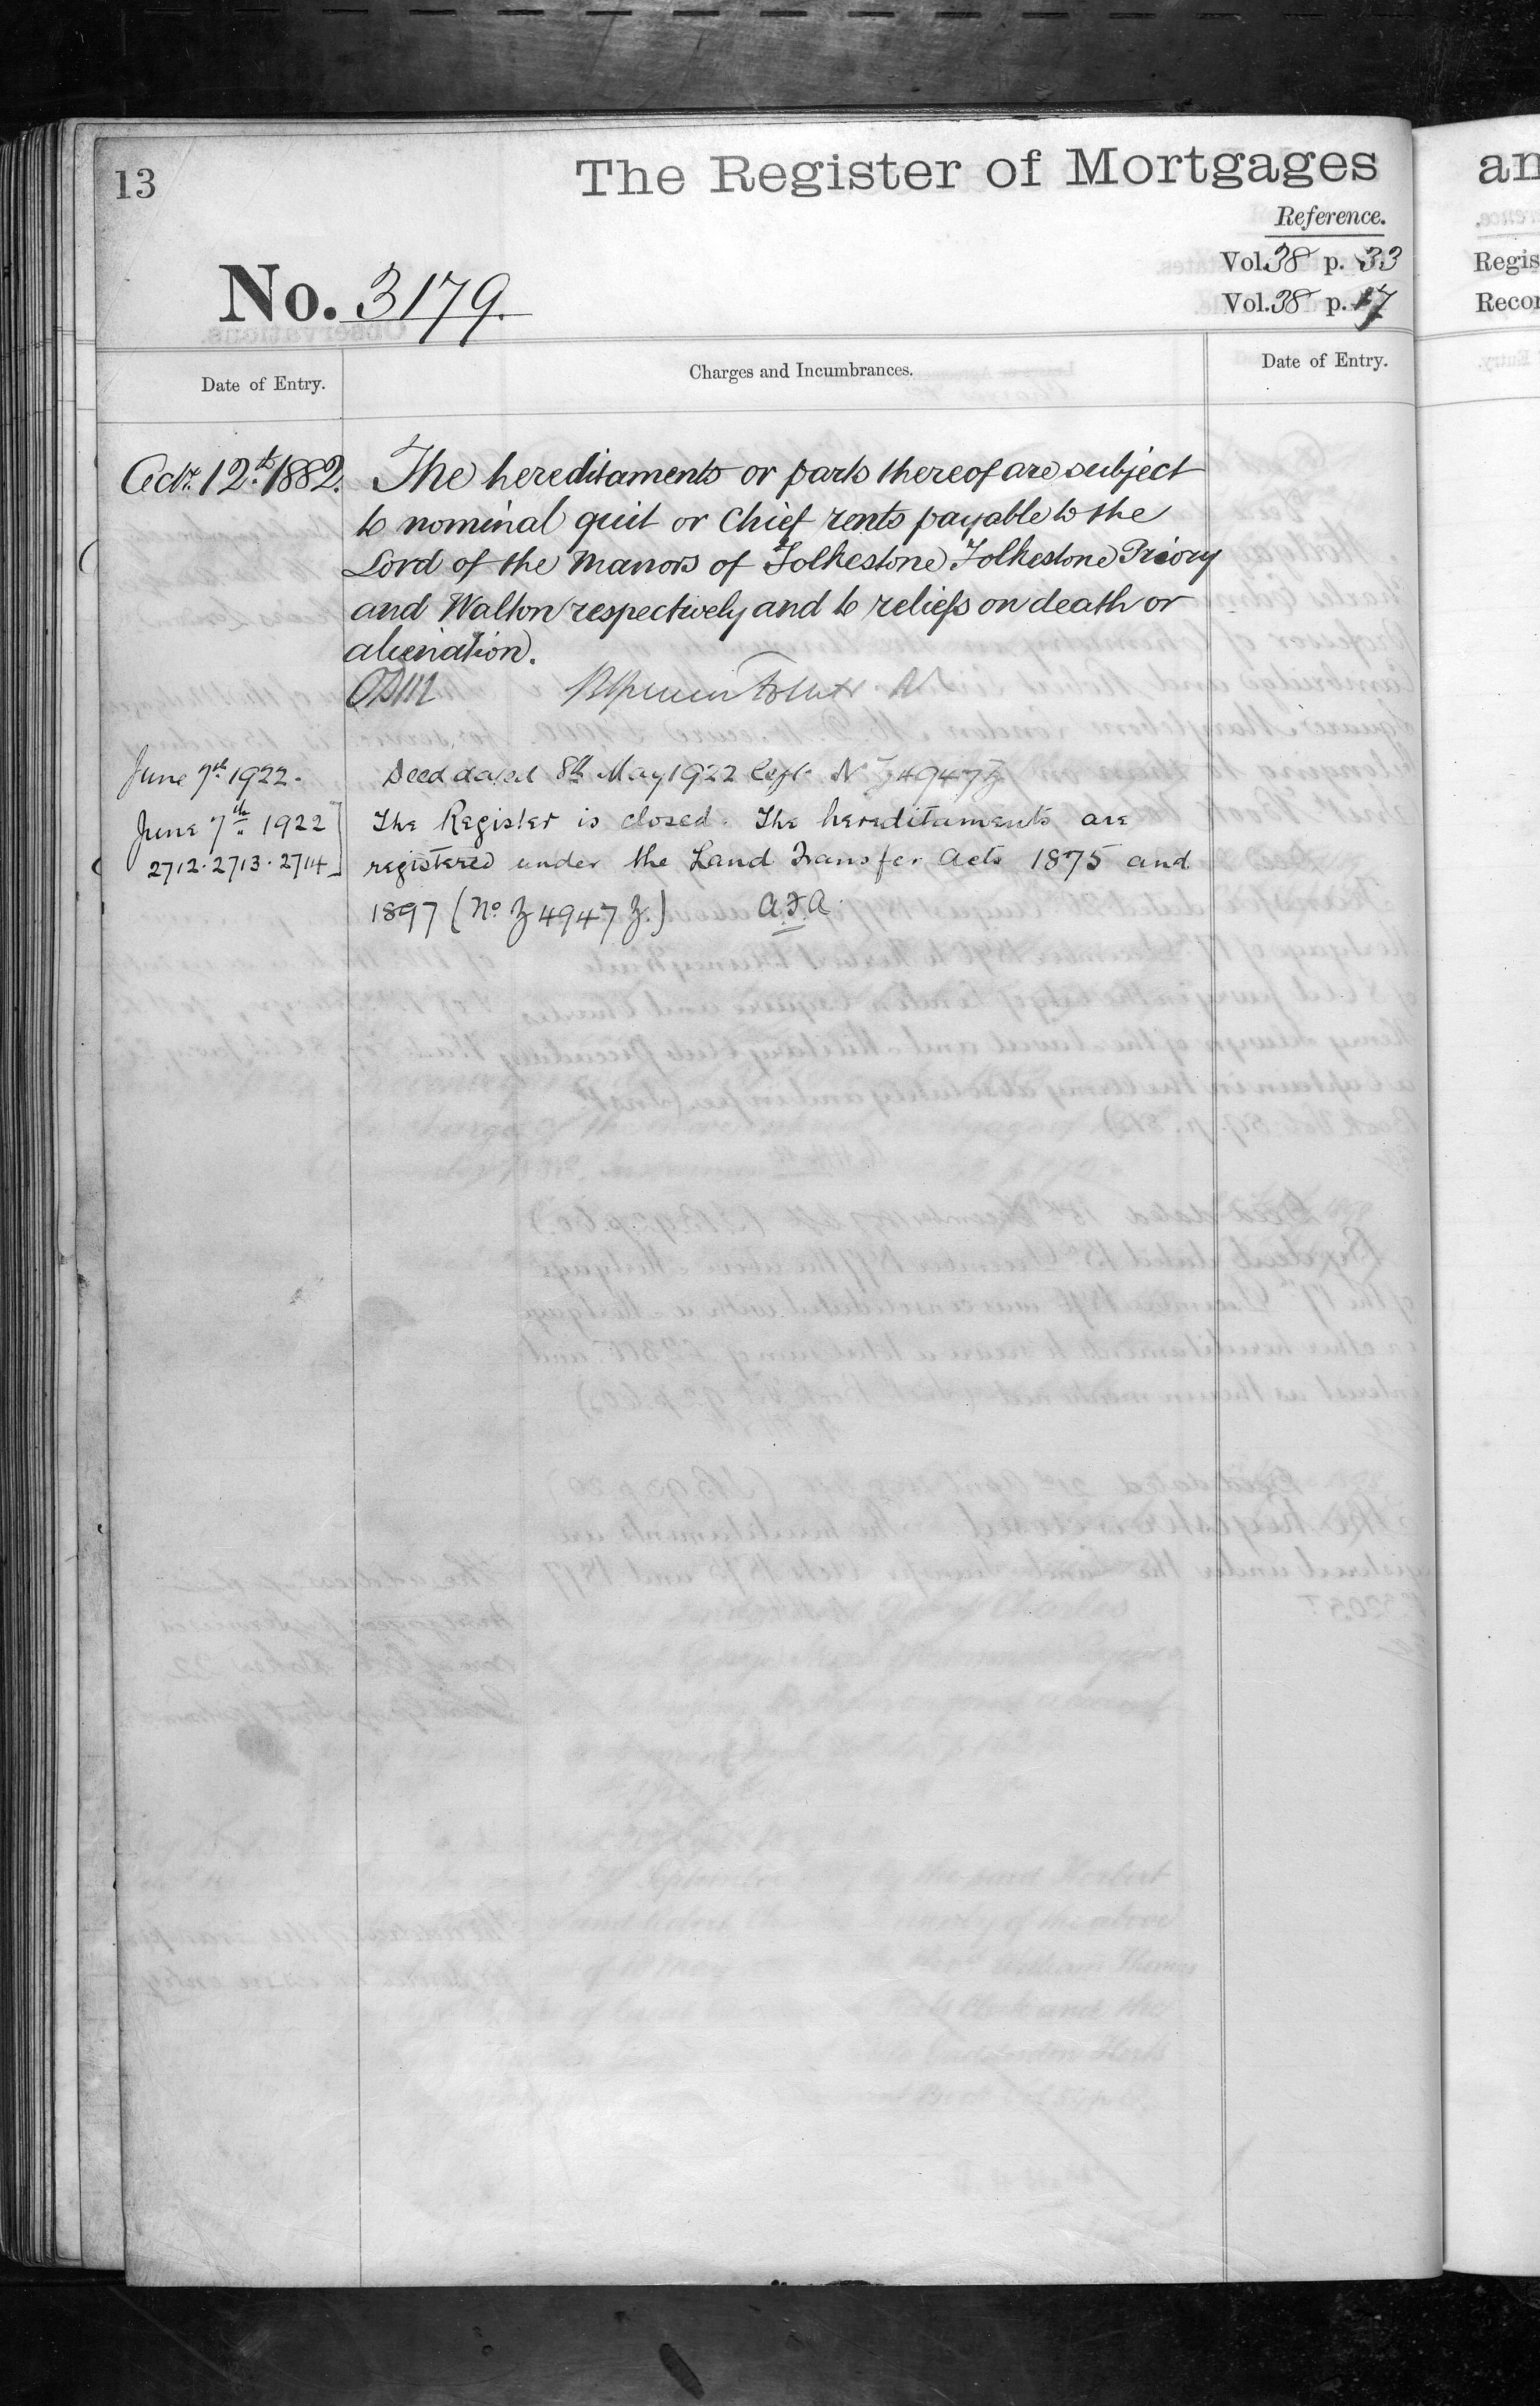 13
The Register of Mortgages
Reference.
No. 3179.
Vol. 38 p. 33
Vol. 38 p. 17
Date of Entry.
Charges and Incumbrances.
Date of Entry.
Octr. 12th 1882.
The hereditaments or parts thereof are subject
to nominal quit or Chief rents payable to the
Lord of the Manors of Folkestone Folkestone Priory
and Walton respectively and to reliefs on death or
alienation.
June 7th 1922.
Deed dated 8th May 1922 No Z 4947 Z
June 7th 1922
2712. 2713. 2714
The Register is closed. The hereditaments are
registered under the Land Transfer Acts 1875 and
1897 (No Z 4947 Z.) A.F.A.
an
Regis
Recor